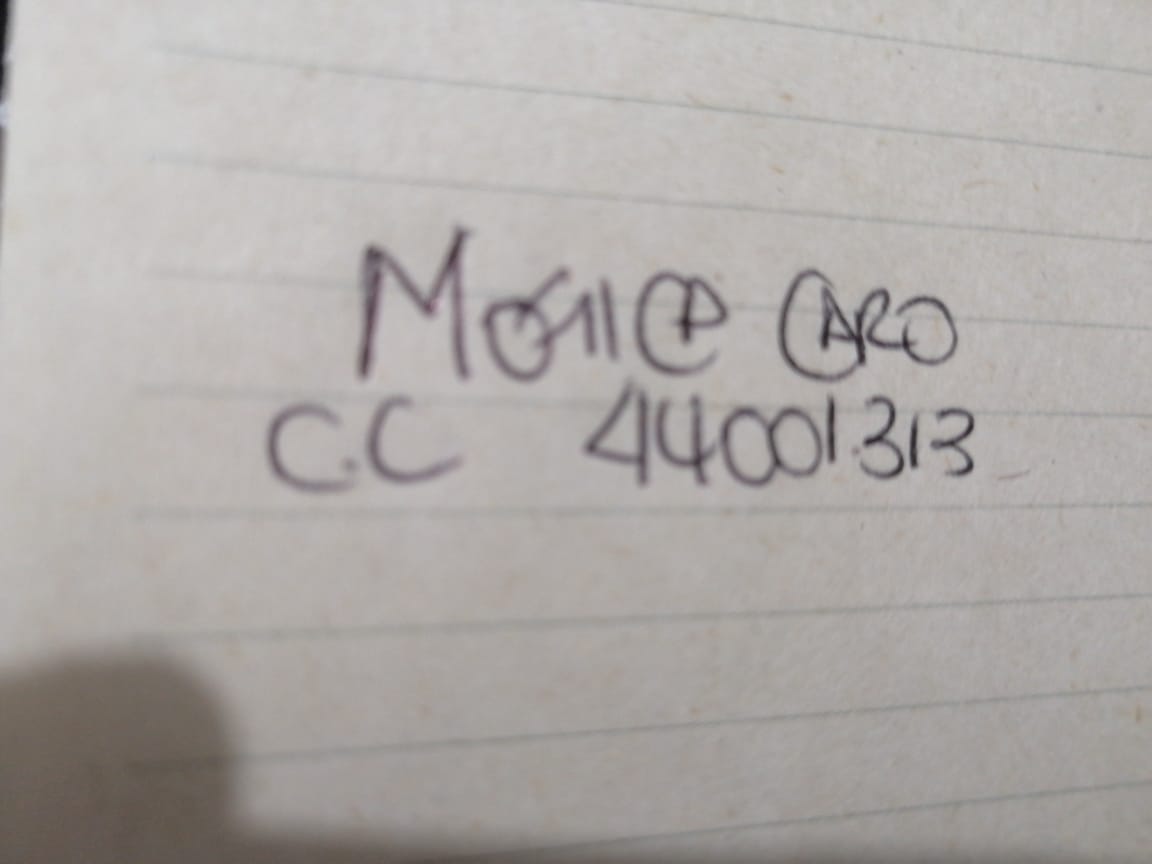 Monica Caro
C.C 44001313